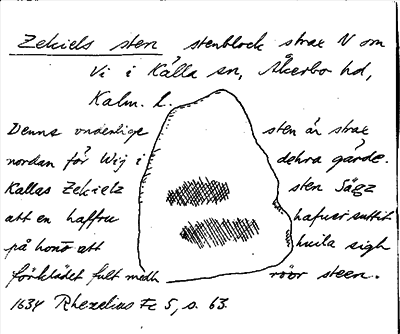 Zekiels sten stenblock strax N om
Vi i Källa sn, Åkerbo hd,
Kalm. l.
Denne underlige sten är strax
nordan för Wij i dehra gärde.
Kallas Zekielz sten Sägz
att en haffru hafuer suttit
på honō att huila sigh
förklädet fult medh röör steen.
1634 Rhezelius Fc 5, s. 63.